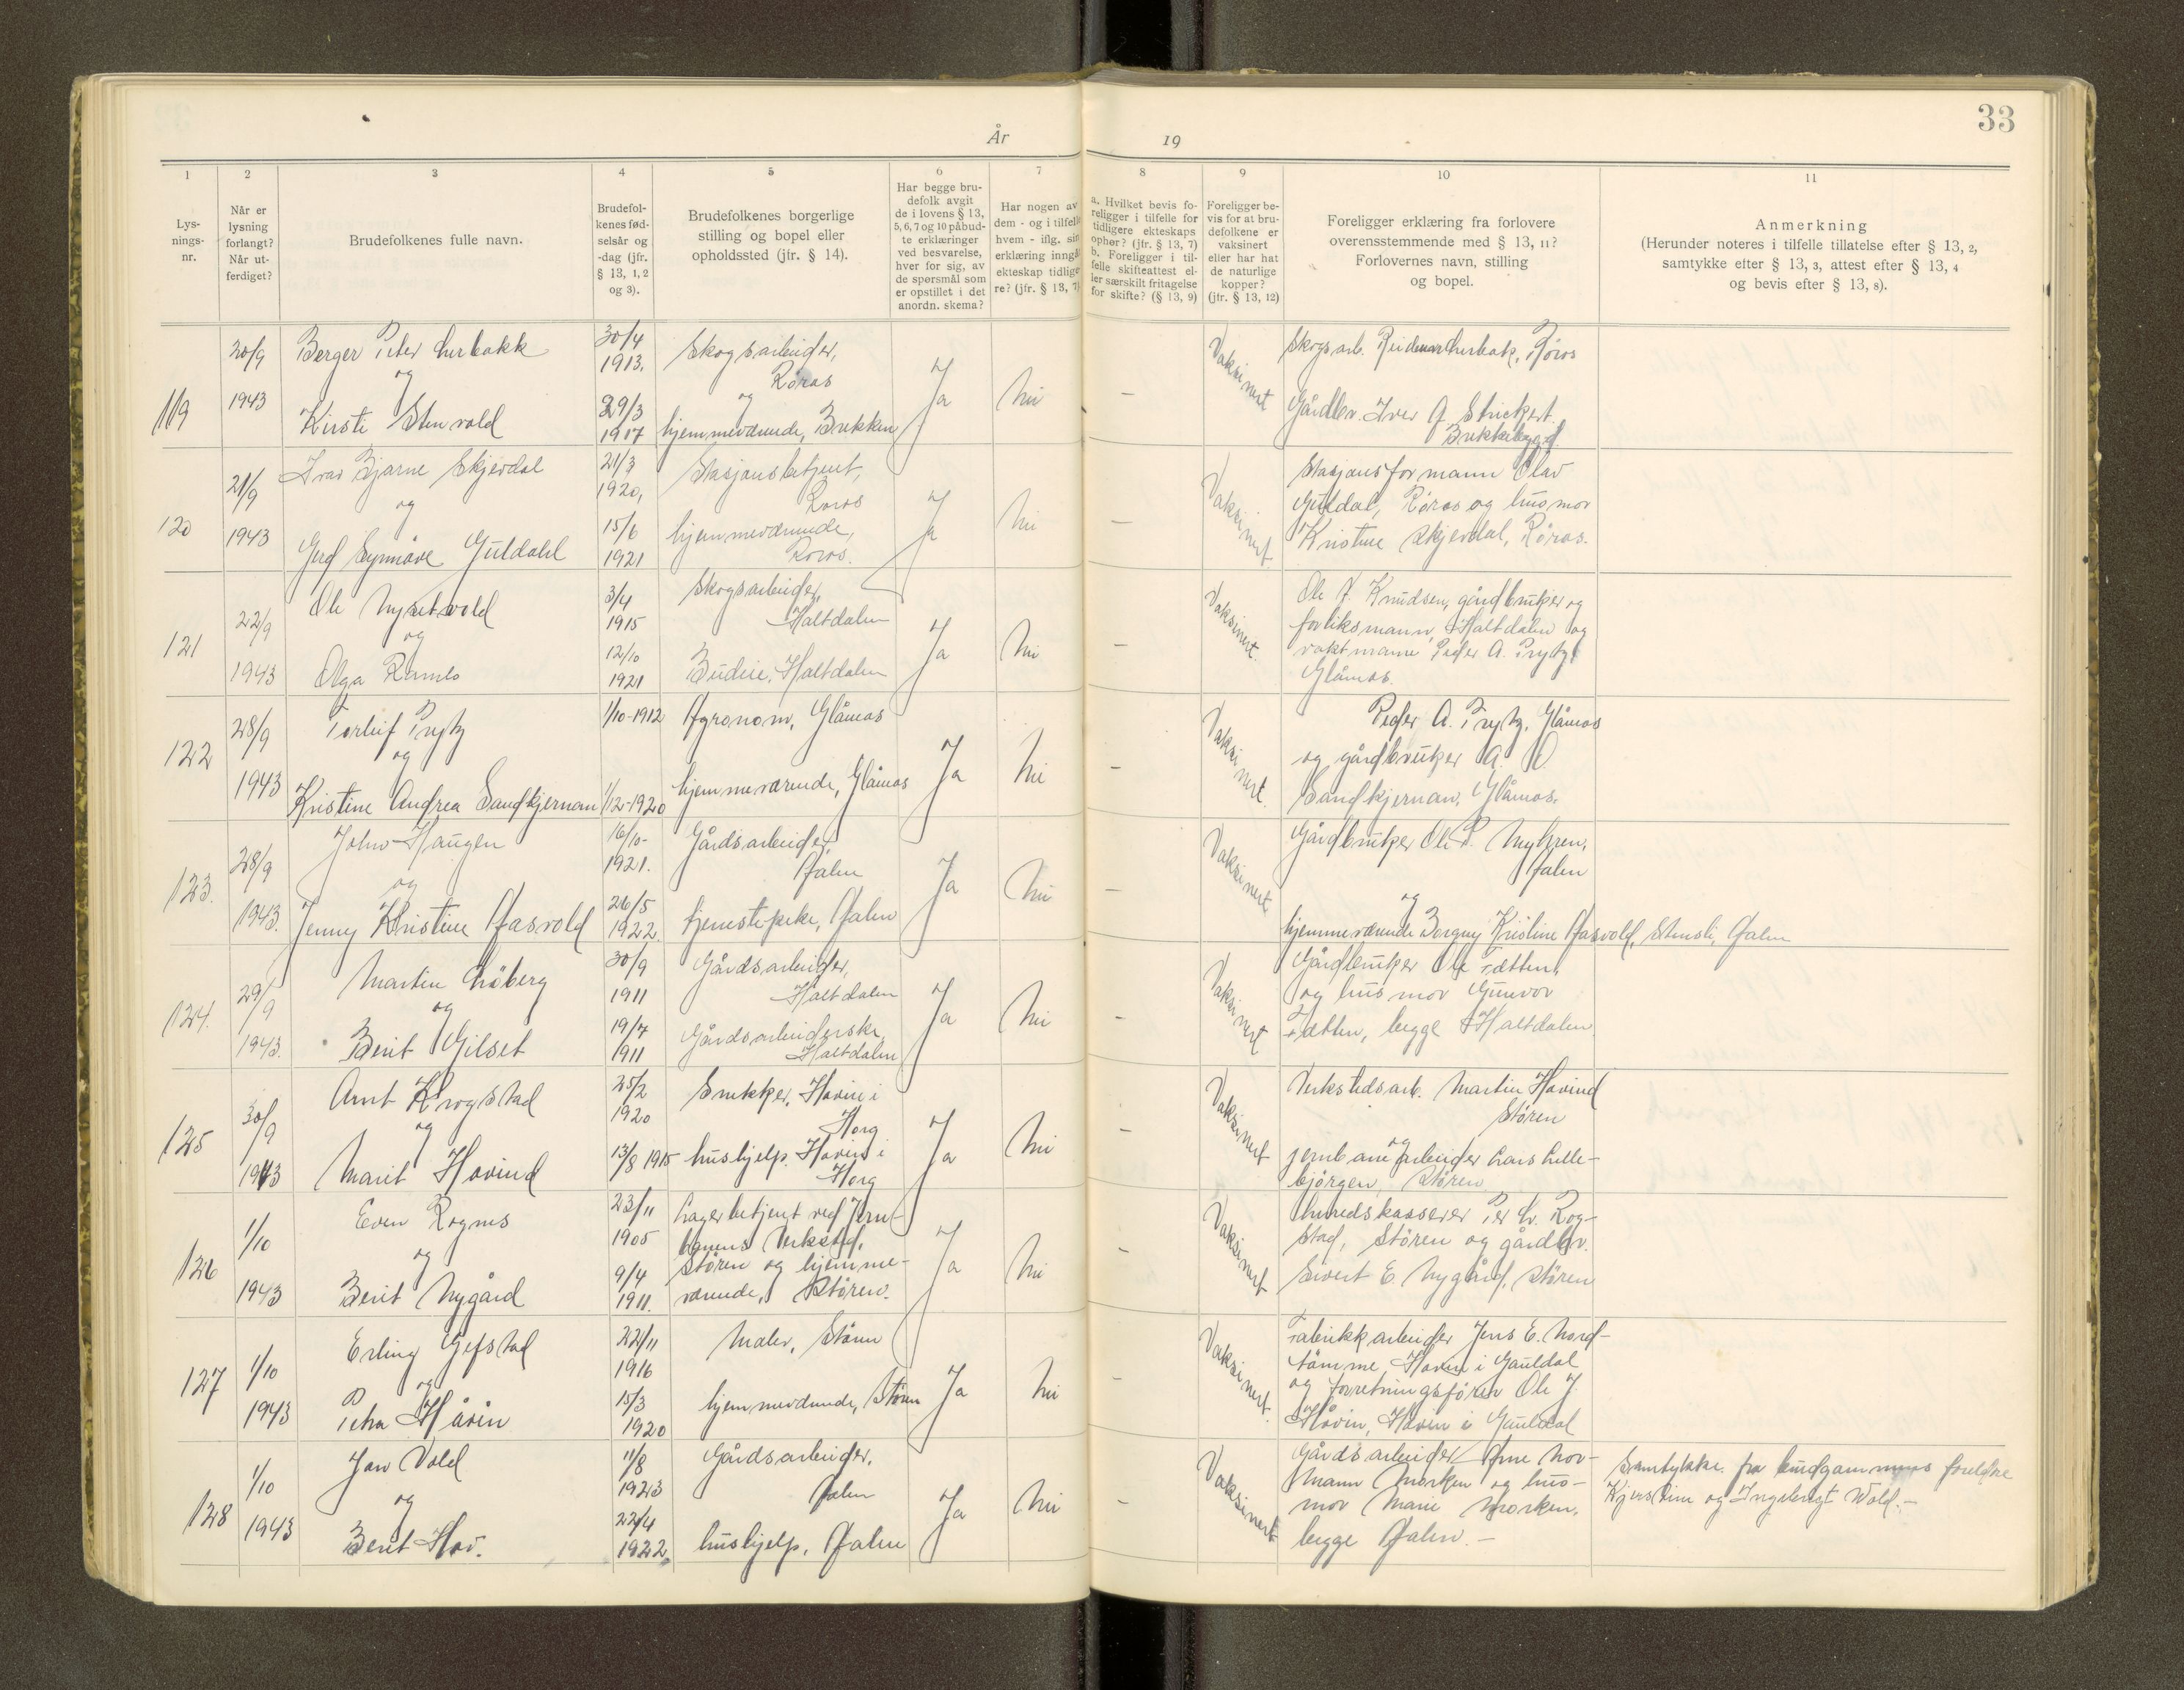 33
År 19
1 2 3 4 5 6 7 8 9 10 11
Lys-
nings-
nr.
Når er
lysning
forlangt?
Når ut-
ferdiget?
Brudefolkenes fulle navn.
Brudefol-
kenes fød-
selsår og
-dag (jfr.
§ 13, 1, 2
og 3).
Brudefolkenes borgerlige
stilling og bopel eller
opholdssted (jfr. § 14).
Har begge bru-
defolk avgit
de i lovens § 13,
5, 6, 7 og 10 påbud-
te erklæringer
ved besvarelse,
hver for sig, av
de spørsmål som
er opstillet i det
anordn. skema?
Har nogen av
dem - og i tilfelle
hvem - iflg. sin
erklæring inngå
ekteskap tidlige
re? (jfr. § 13, 7)
a. Hvilket bevis fo-
religger i tilfelle for
tidligere ekteskaps
ophør? (jfr. § 13, 7)
b. Foreligger i til-
felle skifteattest el-
ler særskilt fritagelse
for skifte? (§ 13, 9)
Foreligger be-
vis for at bru-
defolkene er
vaksinert
eller har hat
de naturlige
kopper?
(jfr. § 13, 12)
Foreligger erklæring fra forlovere
overensstemmende med § 13, 11?
Forlovernes navn, stilling
og bopel.
Anmerkning
(Herunder noteres i tilfelle tillatelse efter § 13, 2,
samtykke efter § 13, 3, attest efter § 13, 4
og bevis efter § 13, 8).
119
20/9
1943
Berger Peter
og
Kirsti Stenvold
30/4
1913.
29/3
1917
Skogsarbeider,
Røros
og
hjemmeværende, Brekken
Ja
Nei
-
Vaksinert
Skogsarb. Røros
Gårdbr. Iver A. Strickert
Brekkebygd
120
21/9
1943
Ivar Bjarne Skjevdal
og
Gerd Synnøve Guldahl
21/3
1920,
15/6
1921
Stasjonsbetjent,
Røros
hjemmeværende,
Røros.
Ja
Nei
-
Vaksinert
Stasjonsformann Olav
Guldal, Røros og husmor
Kristine Skjevdal, Røros.
121
22/9
1943
Ole Nysetvold
og
Olga Ramlo
3/4
1915
12/10
1921
Skogsarbeider,
Haltdalen
Budeie, Haltdalen
Ja
Nei
-
Vaksinert.
Ole J. Knudsen, gårdbruker og
forliksmann, Haltdalen og
vaktmann Peder A. Prytz,
Glåmos.
122
28/9
1943
Torleif Prytz
og
Kristine Andrea Sandkjernan
1/10-1912
1/12-1920
Agronom, Glåmos
hjemmeværende, Glåmos
Ja
Nei
-
Vaksinert.
Peder A. Prytz, Glåmos
og gårdbruker A. O.
Sandkjernan, Glåmos.
123.
28/9
1943.
John Haugen
og
Jenny Kristine Aasvold
16/10-
1921.
26/5
1922.
Gårdsarbeider,
Ålen
tjenestepike, Ålen
Ja
Nei
-
Vaksinert
Gårdbruker Ole P. Myhren,
Ålen
og
hjemmeværende Borgny Kristine Aasvold, Stensli, Ålen
124.
29/9
1943.
Martin Løberg
og
Berit Gilset
30/9
1911
19/7
1911
Gårdsarbeider,
Haltdalen
Gårdsarbeiderske,
Haltdalen
Ja
Nei
-
Vaksinert
Gårdbruker Ole Tætten,
og husmor Gunvor
Tætten, begge Haltdalen
125
30/9
1943
Arnt Krogstad
og
Marit Hovind
25/2
1920
13/8 1915
Snekker, Hovin i
Horg
hushjelp. Hovin i
Horg
Ja
Nei
-
Vaksinert
Verkstedsarb. Martin Hovind
Støren
og
jernbanearbeider Lars Lille-
bjørgen, Støren
126
1/10
1943
Even Rognes
og
Berit Nygård
23/11
1905
9/4
1911.
Lagerbetjent ved Jern-
banens Verksted,
Støren og hjemme-
værende, Støren.
Ja
Nei
-
Vaksinert
Herredskasserer Per Rog-
stad, Støren og gårdbr.
Sivert E Nygård, Støren
127
1/10
1943
Erling Gefstad
og
Petra Håvin
22/11
1916
15/3
1920
Maler, Støren
hjemmeværende, Støren
Ja
Nei
-
Vaksinert.
Fabrikkarbeider Jens E. Nord-
tømme, Hovin i Gauldal
og forretningsfører Ole J.
Håvin, Hovin i Gauldal
128
1/10
1943
Jon Vold
og
Berit Hov.
11/8
1923
22/4
1922,
Gårdsarbeider,
Ålen
hushjelp, Ålen
Ja
Nei
-
Vaksinert
Gårdsarbeider Arne Nor-
mann Morken og hus-
mor Marie Morken,
begge Ålen. -
Samtykke fra brudgommens foreldre
Kjerstine og Ingebrigt Wold. -